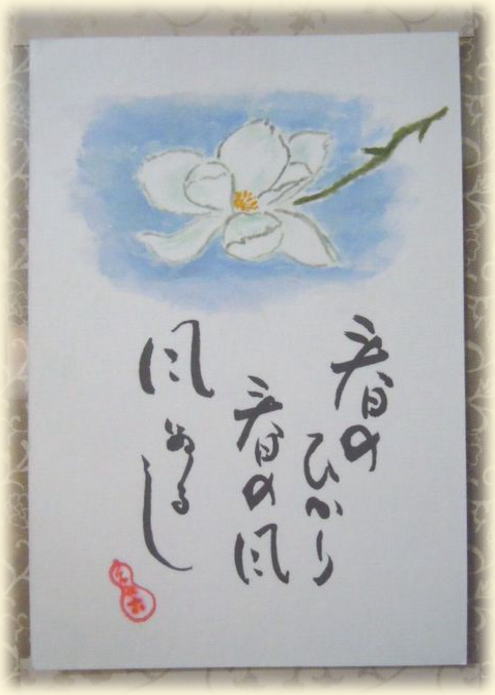 春の
ひかり
春の風
風
ぬるし